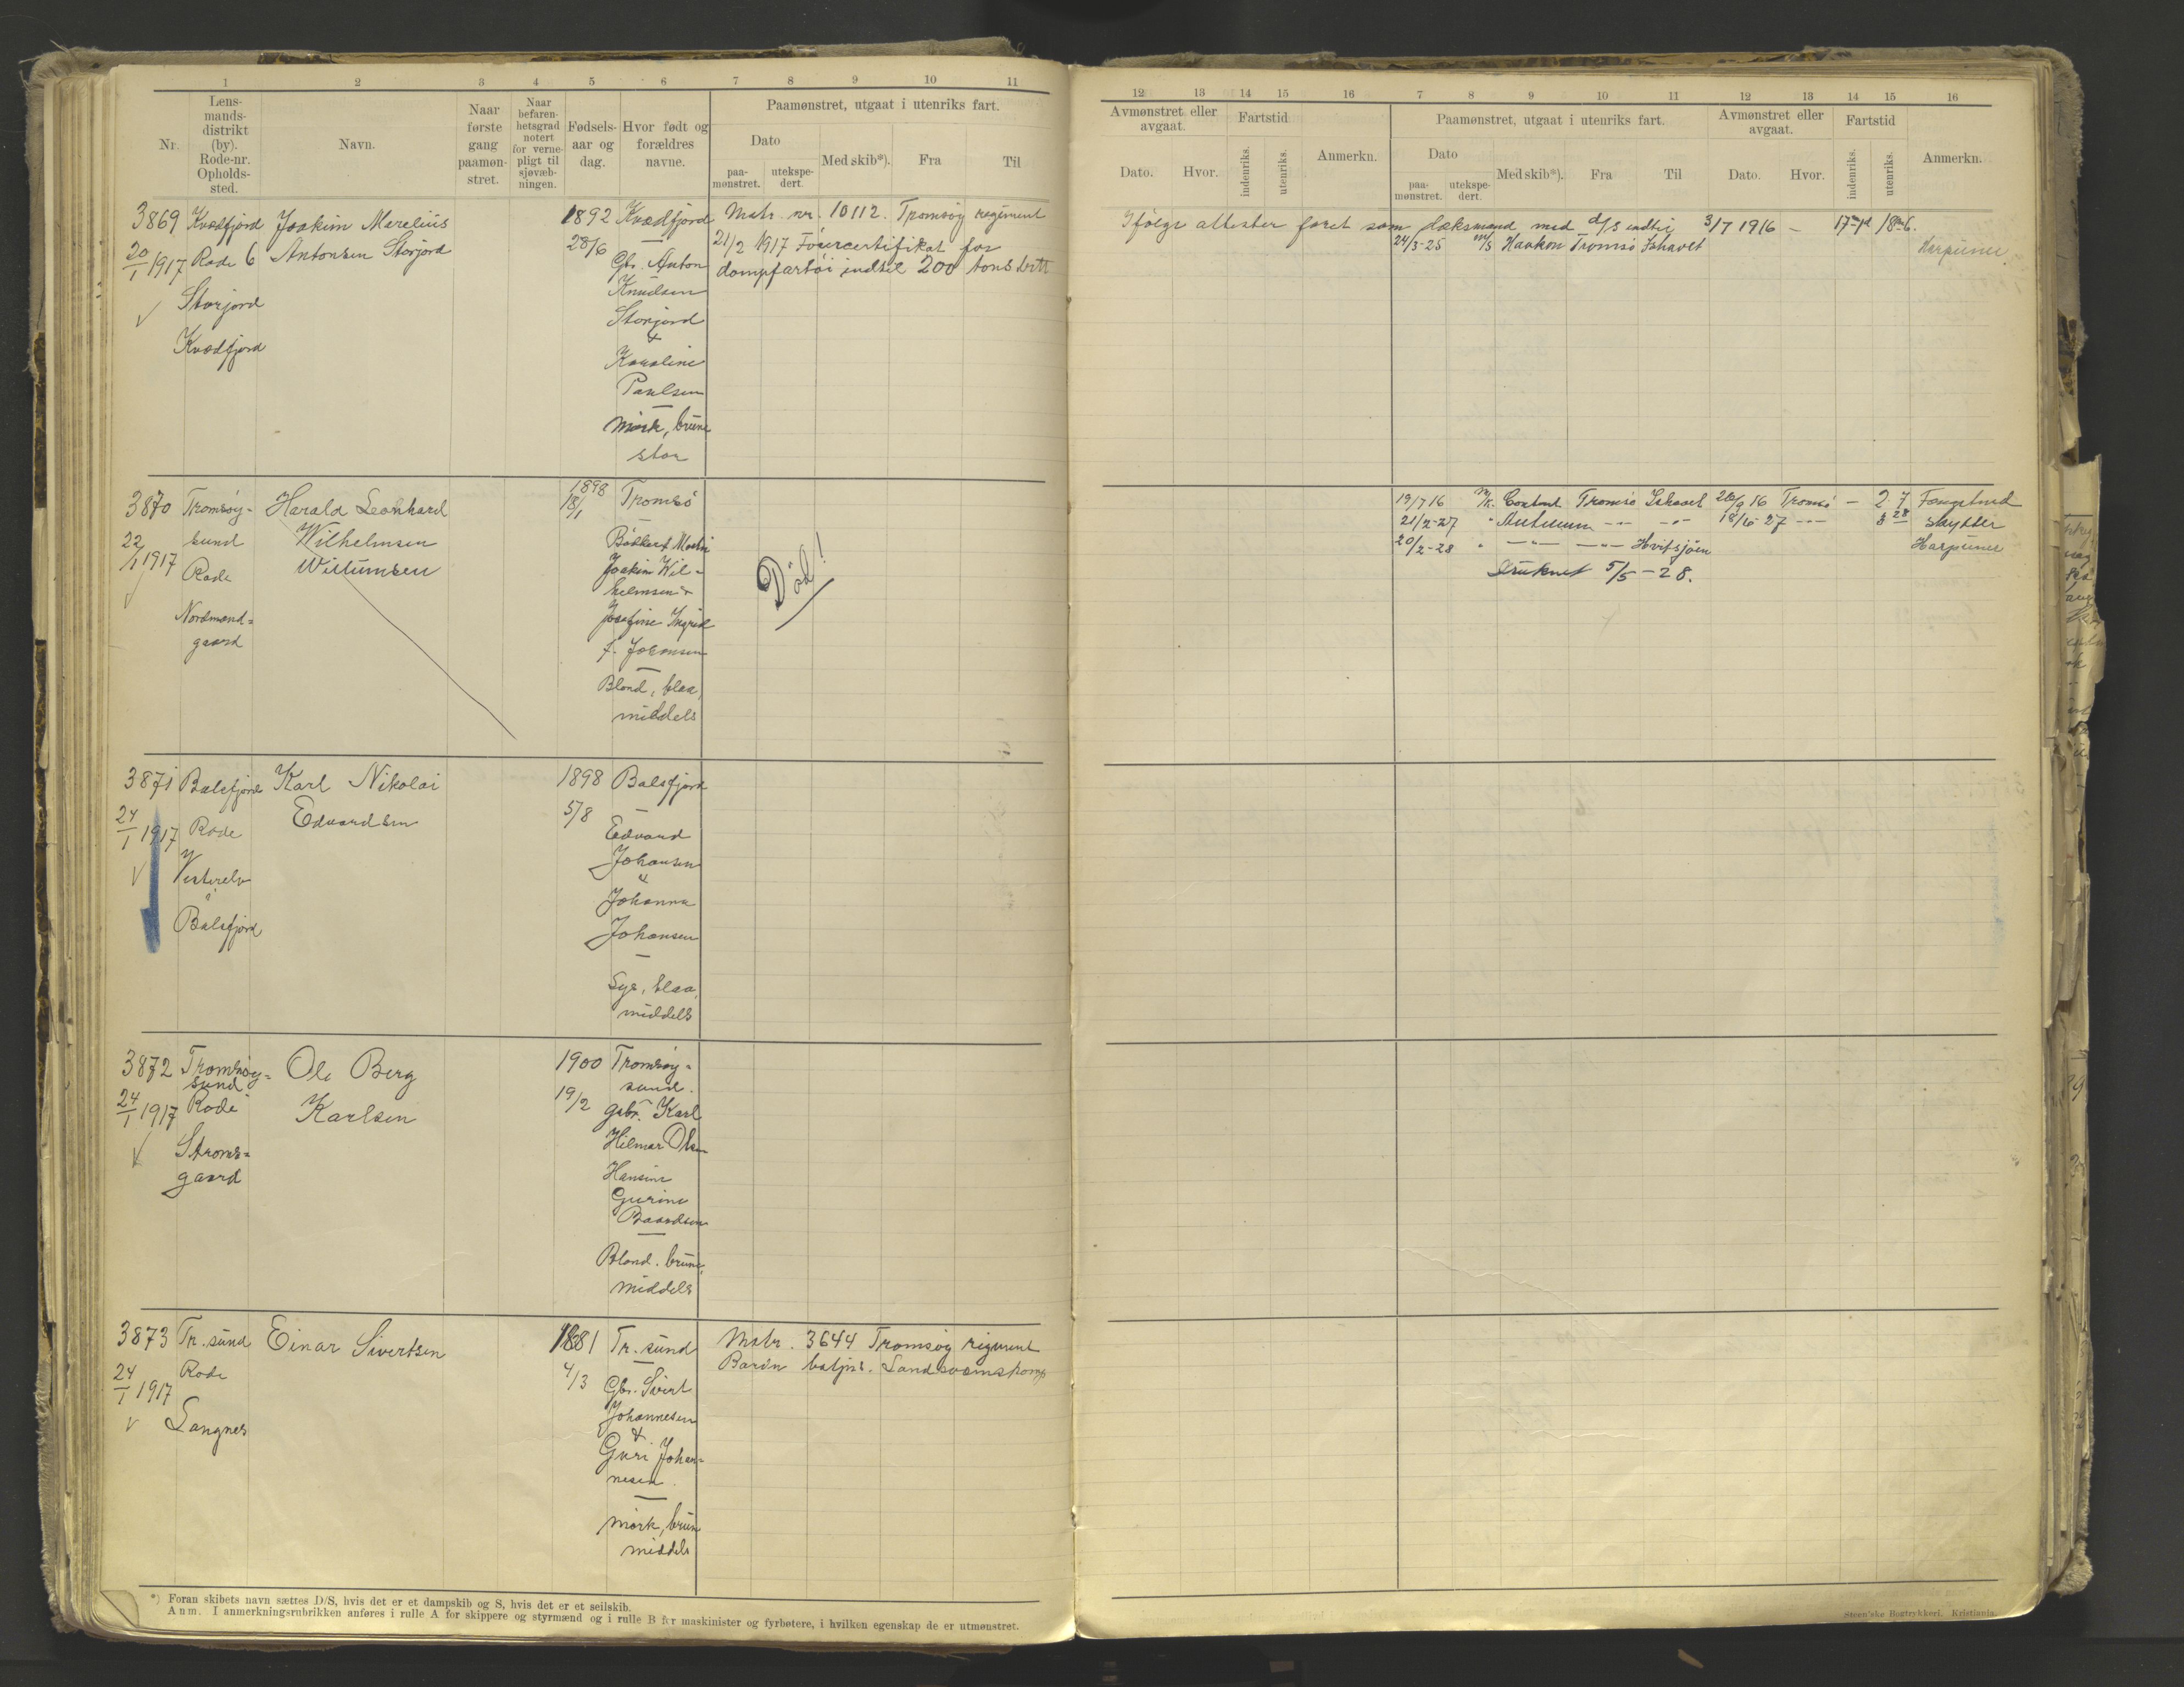 1 2 3 4 5 6 7 8 9 10 11
Nr.
Lens-
mands-
distrikt
(by).
Rode-nr.
Opholds-
sted.
Navn.
Naar
første
gang
paamøn-
stret.
Naar
befaren-
hetsgrad
notert
for verne-
pligt til
sjøvæb-
ningen.
Fødsels-
aar og
dag.
Hvor født og
forældres
navne.
Paamønstret, utgaat i utenriks fart.
Dato
paa-
mønstret.
utekspe-
dert.
Med skib*).
Fra
Til
3869
20/1 1917
Kvædfjord
Rode 6
Storjord
Kvædfjord
Joakim Marelius
Antonsen Storjord
1892
28/6
Kvædfjord
Gbr. Anton
Knudsen
Storjord
&
Karoline
Paulsen
Mörk, brune
stor
Matr. nr. 10112. Tromsøy regiment
21/2 1917 Förercertifikat for
dampfartöi indtil 200 tons drtt
3870
22/1 1917
Tromsøy-
sund
Rode
Nordmand-
gaard
Harald Leonhard
Wilhelmsen
Willumsen
1898
18/1
Tromsö
Joakim Wil-
helmsen &
Josefine Ingrid
f. Johansen
Blond, blaa,
middels
Död!
3871
24/1 1917
Balsfjord
Rode
Vesterelv
i
Balsfjord
Karl Nikolai
Edvardsen
1898
5/8
Balsfjord
Edvard
Johansen
&
Johanna
Johansen
Lys, blaa,
middels
3872
24/1 1917
Tromsøy-
sund
Rode
Stroms-
gaard
Ole Berg
Karlsen
1900
19/2
Tromsøy-
sund.
gbr. Karl
Hilmar Olsen
Hansine
Gurine
Baardsen
Blond. brune,
middels
3873
24/1 1917
Tr. sund
Rode
Langnes
Einar Sivertsen
1881
4/3
Tr. sund
Gbr. Sivert
Johannesen
&
Guri Johan-
nesen.
mörk, brun
middels
Matr. 3644 Tromsøy regiment
batjs. Landvernskomp
*) Foran skibets navn sættes D/S, hvis det er et dampskib og S, hvis det er et seilskib.
Anm. I anmerkningsrubrikken anføres i rulle A for skippere og styrmænd og i rulle B for maskinister og fyrbøtere, i hvilken egenskap de er utmønstret.
12 13 14 15 16 7 8 9 10 11 12 13 14 15 16
Avmønstret eller
avgaat.
Dato.
Hvor.
Fartstid
indenriks.
utenriks.
Anmerkn.
Paamønstret, utgaat i utenriks fart.
Dato
paa-
mønstret.
utekspe-
dert.
Med skib*).
Fra
Til
Avmønstret eller
avgaat.
Dato.
Hvor.
Fartstid
indenriks.
utenriks.
Anmerkn.
Ifølge attester faret som dæksmand med d/s indtil 3/7 1916 -
24/3-25 m/s Haakon Tromsö Ishavet Harpuner.
19/7 16 m/k. Tromsö Ishavet 26/9 16 Tromsö - 2 7 Fangstmd
21/2-27 " Autumn -"- -"- 18/6-27 -"- 3 28 skytter
20/2-28 " -"- -"- Hvitsjöen Harpuner
Druknet 5/5-28.
Steen'ske Bogtrykkeri. Kristiania.